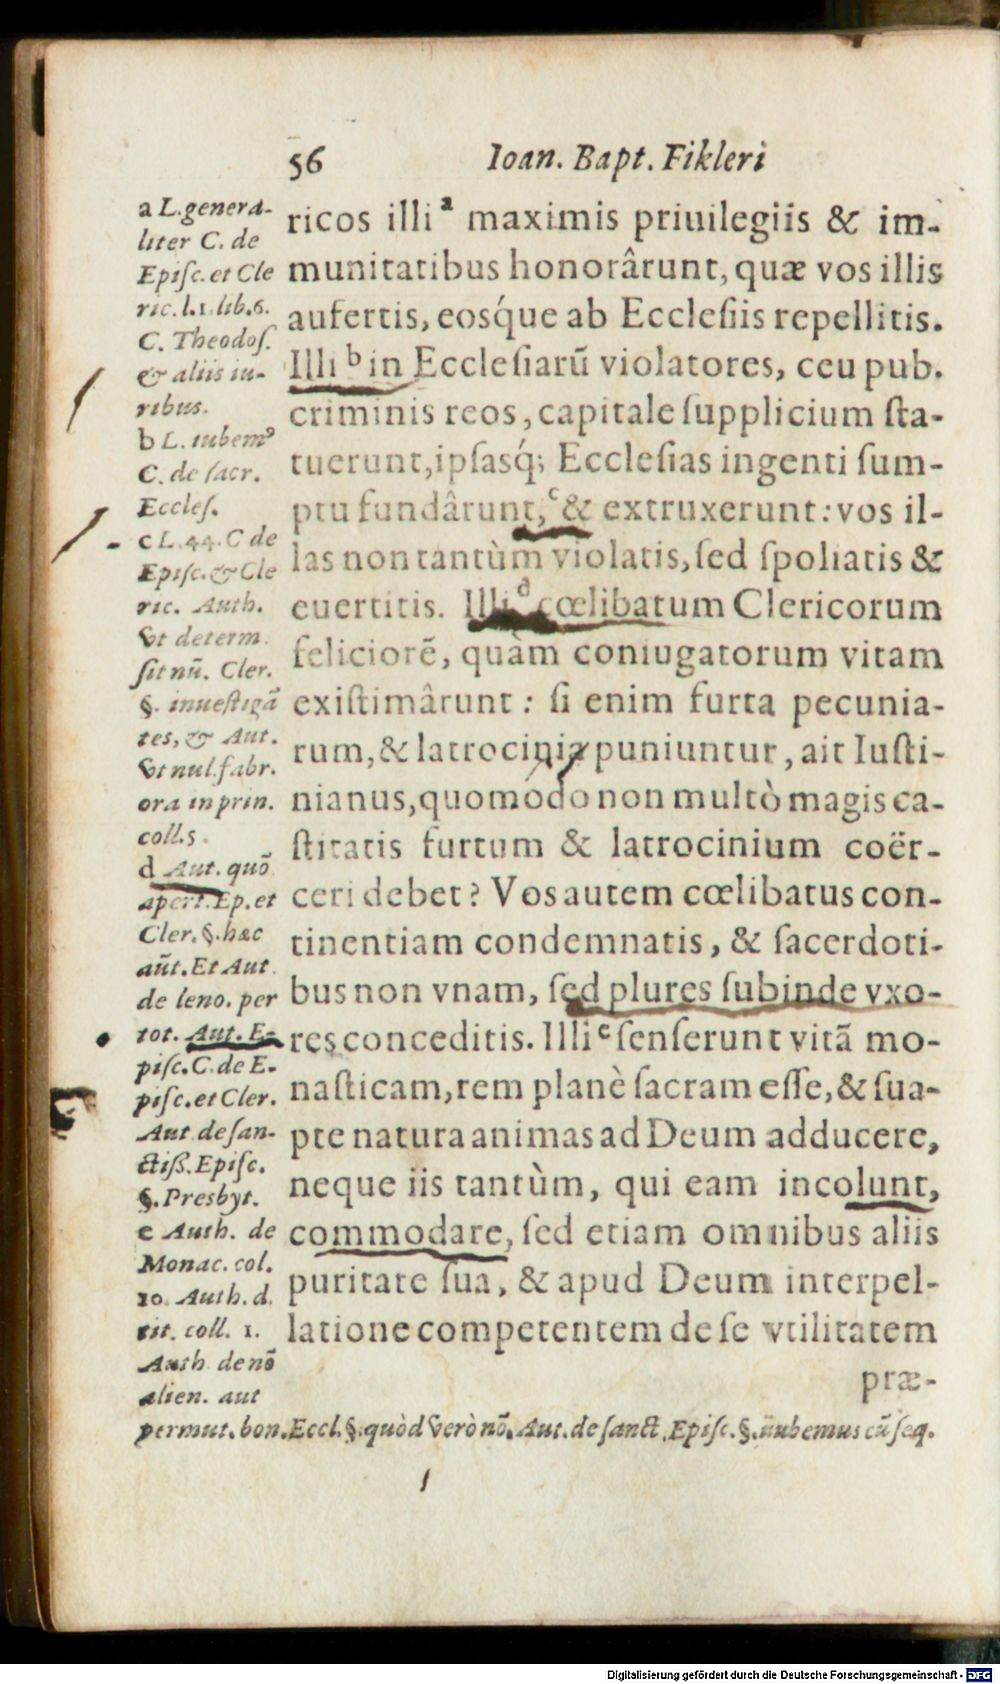 56 Ioan. Bapt. Fikleri
ricos illi a maximis priuilegiis & im-
munitatibus honorârunt, quæ vos illis
aufertis, eosq́ue ab Ecclesiis repellitis.
Illi b in Ecclesiarū violatores, ceu pub.
criminis reos, capitale supplicium sta-
tuerunt, ipsasq́; Ecclesias ingenti sum-
ptu fundârunt, c & extruxerunt: vos il-
las non tantùm violatis, sed spoliatis &
euertitis. Illi d cœlibatum Clericorum
feliciorē, quàm coniugatorum vitam
existimârunt: si enim furta pecunia-
rum, & latrocinia puniuntur, ait Iusti-
nianus, quomodo non multò magis ca-
stitatis furtum & latrocinium coër-
ceri debet? Vos autem cœlibatus con-
tinentiam condemnatis, & sacerdoti-
bus non vnam, sed plures subinde vxo-
res conceditis. Illi e senserunt vitā mo-
nasticam, rem planè sacram esse, & sua-
pte natura animas ad Deum adducere,
neque iis tantùm, qui eam incolunt,
commodare, sed etiam omnibus aliis
puritate sua, & apud Deum interpel-
latione competentem de se vtilitatem
præ-
a L. genera-
liter C. de
Episc. et Cle
ric. l. 1. lib. 6.
C. Theodos.
& aliis iu-
ribus.
b L. iubem9
C. de sacr.
Eccles.
c L. 44. C de
Episc. & Cle
ric. Auth.
vt determ.
sit nū. Cler.
§. inuestigā
tes, & Aut.
vt nul. fabr.
ora in prin.
coll. 5.
d Aut. quō
apert. Ep. et
Cler. §. hæc
aūt. Et Aut.
de leno. per
tot. Aut. E-
pisc. C. de E-
pisc. et Cler.
Aut de san-
ctiss. Episc.
§. Presbyt.
e Auth. de
Monac. col.
10. Auth. d.
tit. coll. 1.
Auth de nō
alien. aut
permut. bon. Eccl. §. quòd verò nō. Aut. de sanct. Episc. §. iubemus cū seq.
Digitalisierung gefördert durch die Deutsche Forschungsgemeinschaft - DFG